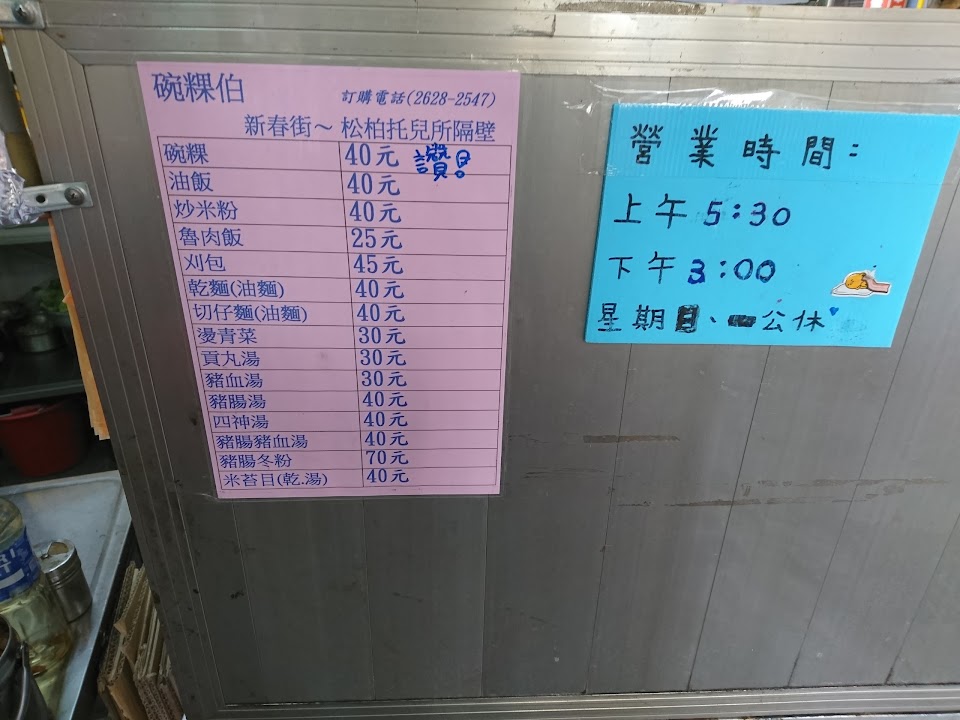 碗粿伯
訂購電話(2628-2547)
新春街～松柏托兒所隔壁
碗粿 40元 讚!
油飯 40元
炒米粉 40元
魯肉飯 25元
刈包 45元
乾麵(油麵) 40元
切仔麵(油麵) 40元
燙青菜 30元
貢丸湯 30元
豬血湯 30元
豬腸湯 40元
四神湯 40元
豬腸豬血湯 40元
豬腸冬粉 70元
米苔目(乾.湯) 40元
營業時間:
上午5:30
下午3:00
星期日、一公休